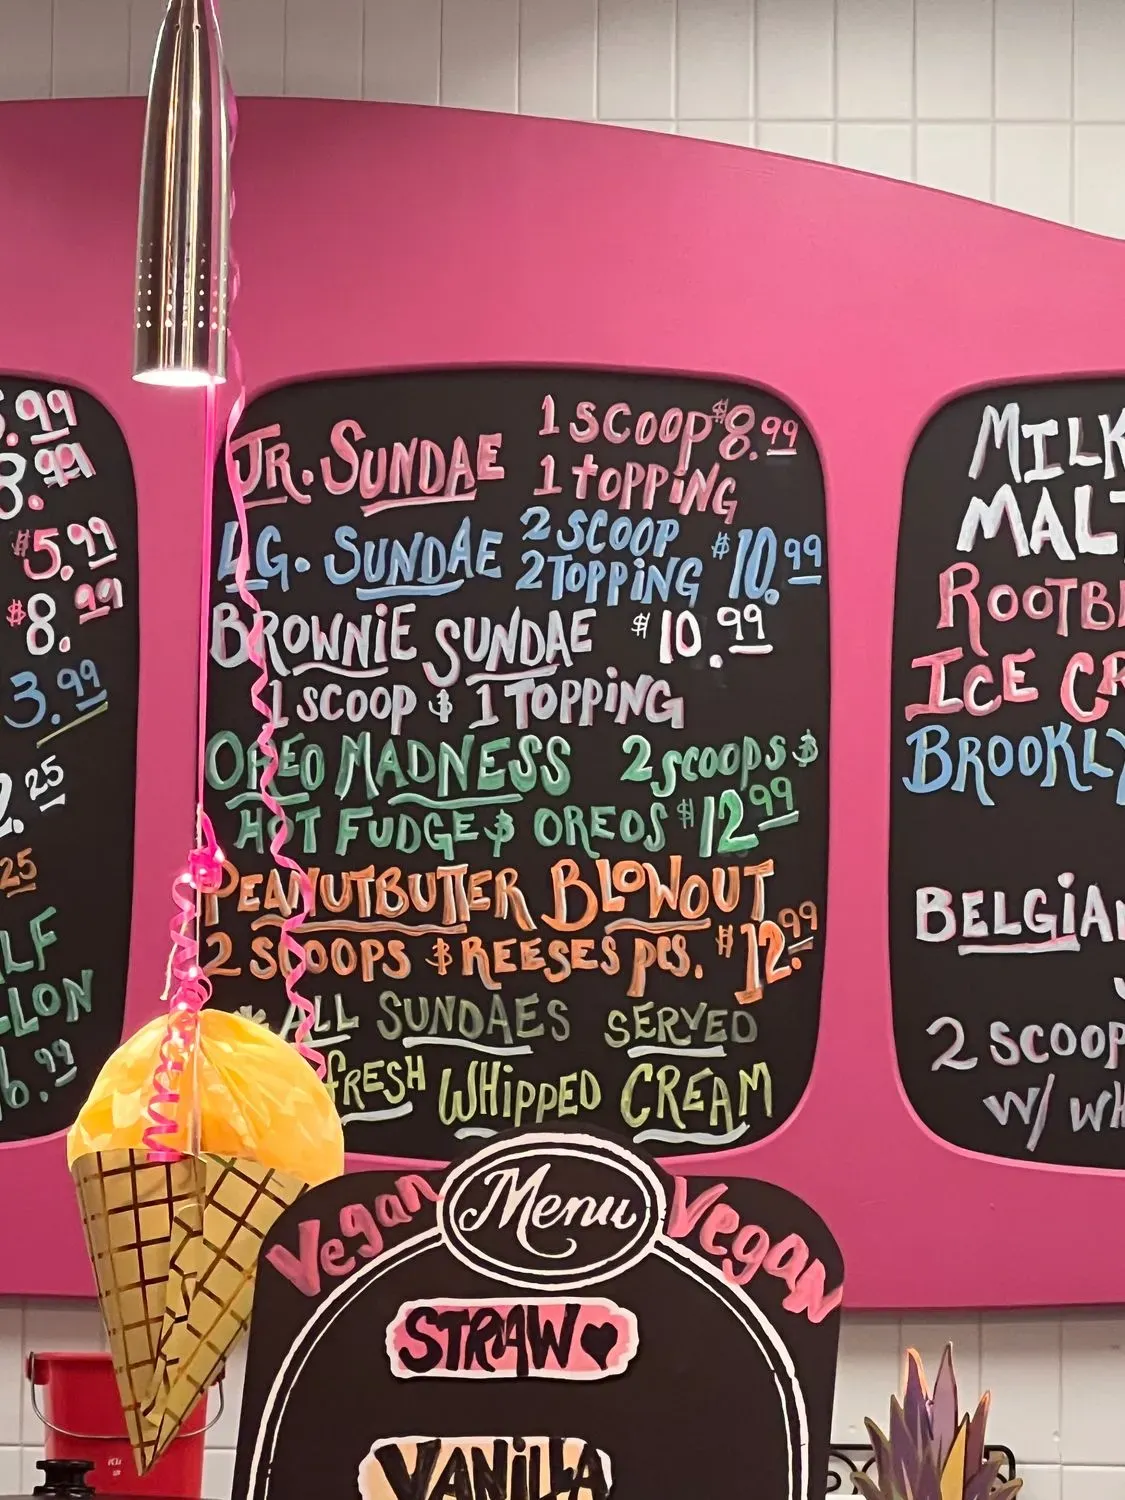 .99
8.99
$5.99
$8.99
3.99
.25
25
LF
LON
6.99
JR. SUNDAE 1 SCOOP $8.99
1 TOPPING
LG. SUNDAE 2 SCOOP
2 TOPPING $10.99
BROWNIE SUNDAE $10.99
1 SCOOP & 1 TOPPING
OREO MADNESS 2 SCOOPS &
HOT FUDGE & OREOS $12.99
PEANUTBUTTER BLOWOUT
2 SCOOPS & REESES pcs. $12.99
* ALL SUNDAES SERVED
FRESH WHIPPED CREAM
MILK
MALT
ROOTB
ICE CR
BROOKLY
BELGIAN
2 SCOOP
W/ WH
Vegan Menu Vegan
STRAW ♥
VANILLA